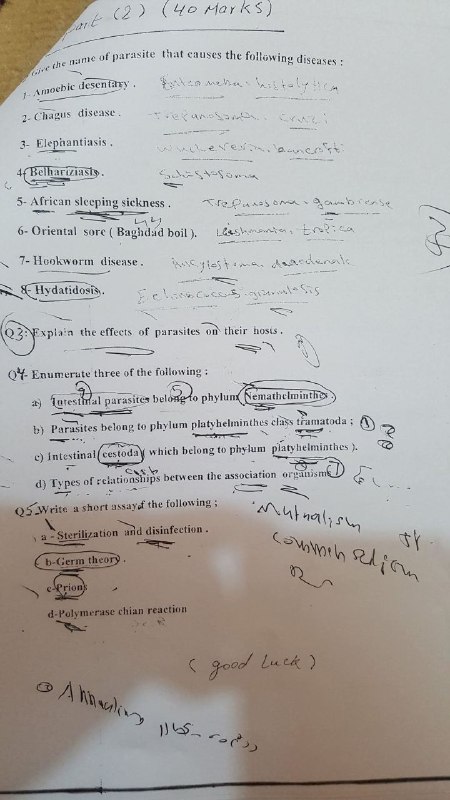 (2) (40 Marks)
the name of parasite that causes the following diseases :
1- Amoebic desentary . Entamoeba histolytica
2- Chagus disease . Trepanosoma. cruzi
3- Elephantiasis .
4- Belhariziasis . Schistosoma
5- African sleeping sickness . Trepanosoma. gambiense
6- Oriental sore ( Baghdad boil). Leishmania, tropica
7- Hookworm disease .
8- Hydatidosis .
Q3: Explain the effects of parasites on their hosts .
Q4- Enumerate three of the following :
a) Intestinal parasites belong to phylum Nemathelminthes
b) Parasites belong to phylum platyhelminthes class tramatoda ;
c) Intestinal cestoda( which belong to phylum platyhelminthes ).
d) Types of relationships between the association organisms
Q5 Write a short assay of the following ;
Mutualism
a - Sterilization and disinfection .
commensalism
b-Germ theory .
c-Prion
d-Polymerase chian reaction
(good luck)